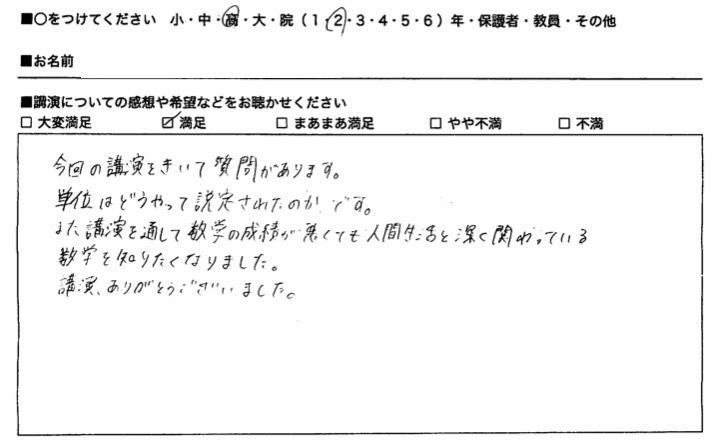 ■○をつけてください 小・中・高・大・院（1・2・3・4・5・6）年・保護者・教員・その他
■お名前
■講演についての感想や希望などをお聴かせください
□ 大変満足 ☑ 満足 □ まあまあ満足 □ やや不満 □ 不満
今回の講演をきいて質問があります。
単位はどうやって説定されたのか です。
また講演を通して数学の成績が悪くても人間生活と深く関わっている
数学を知りたくなりました。
講演、ありがとうございました。